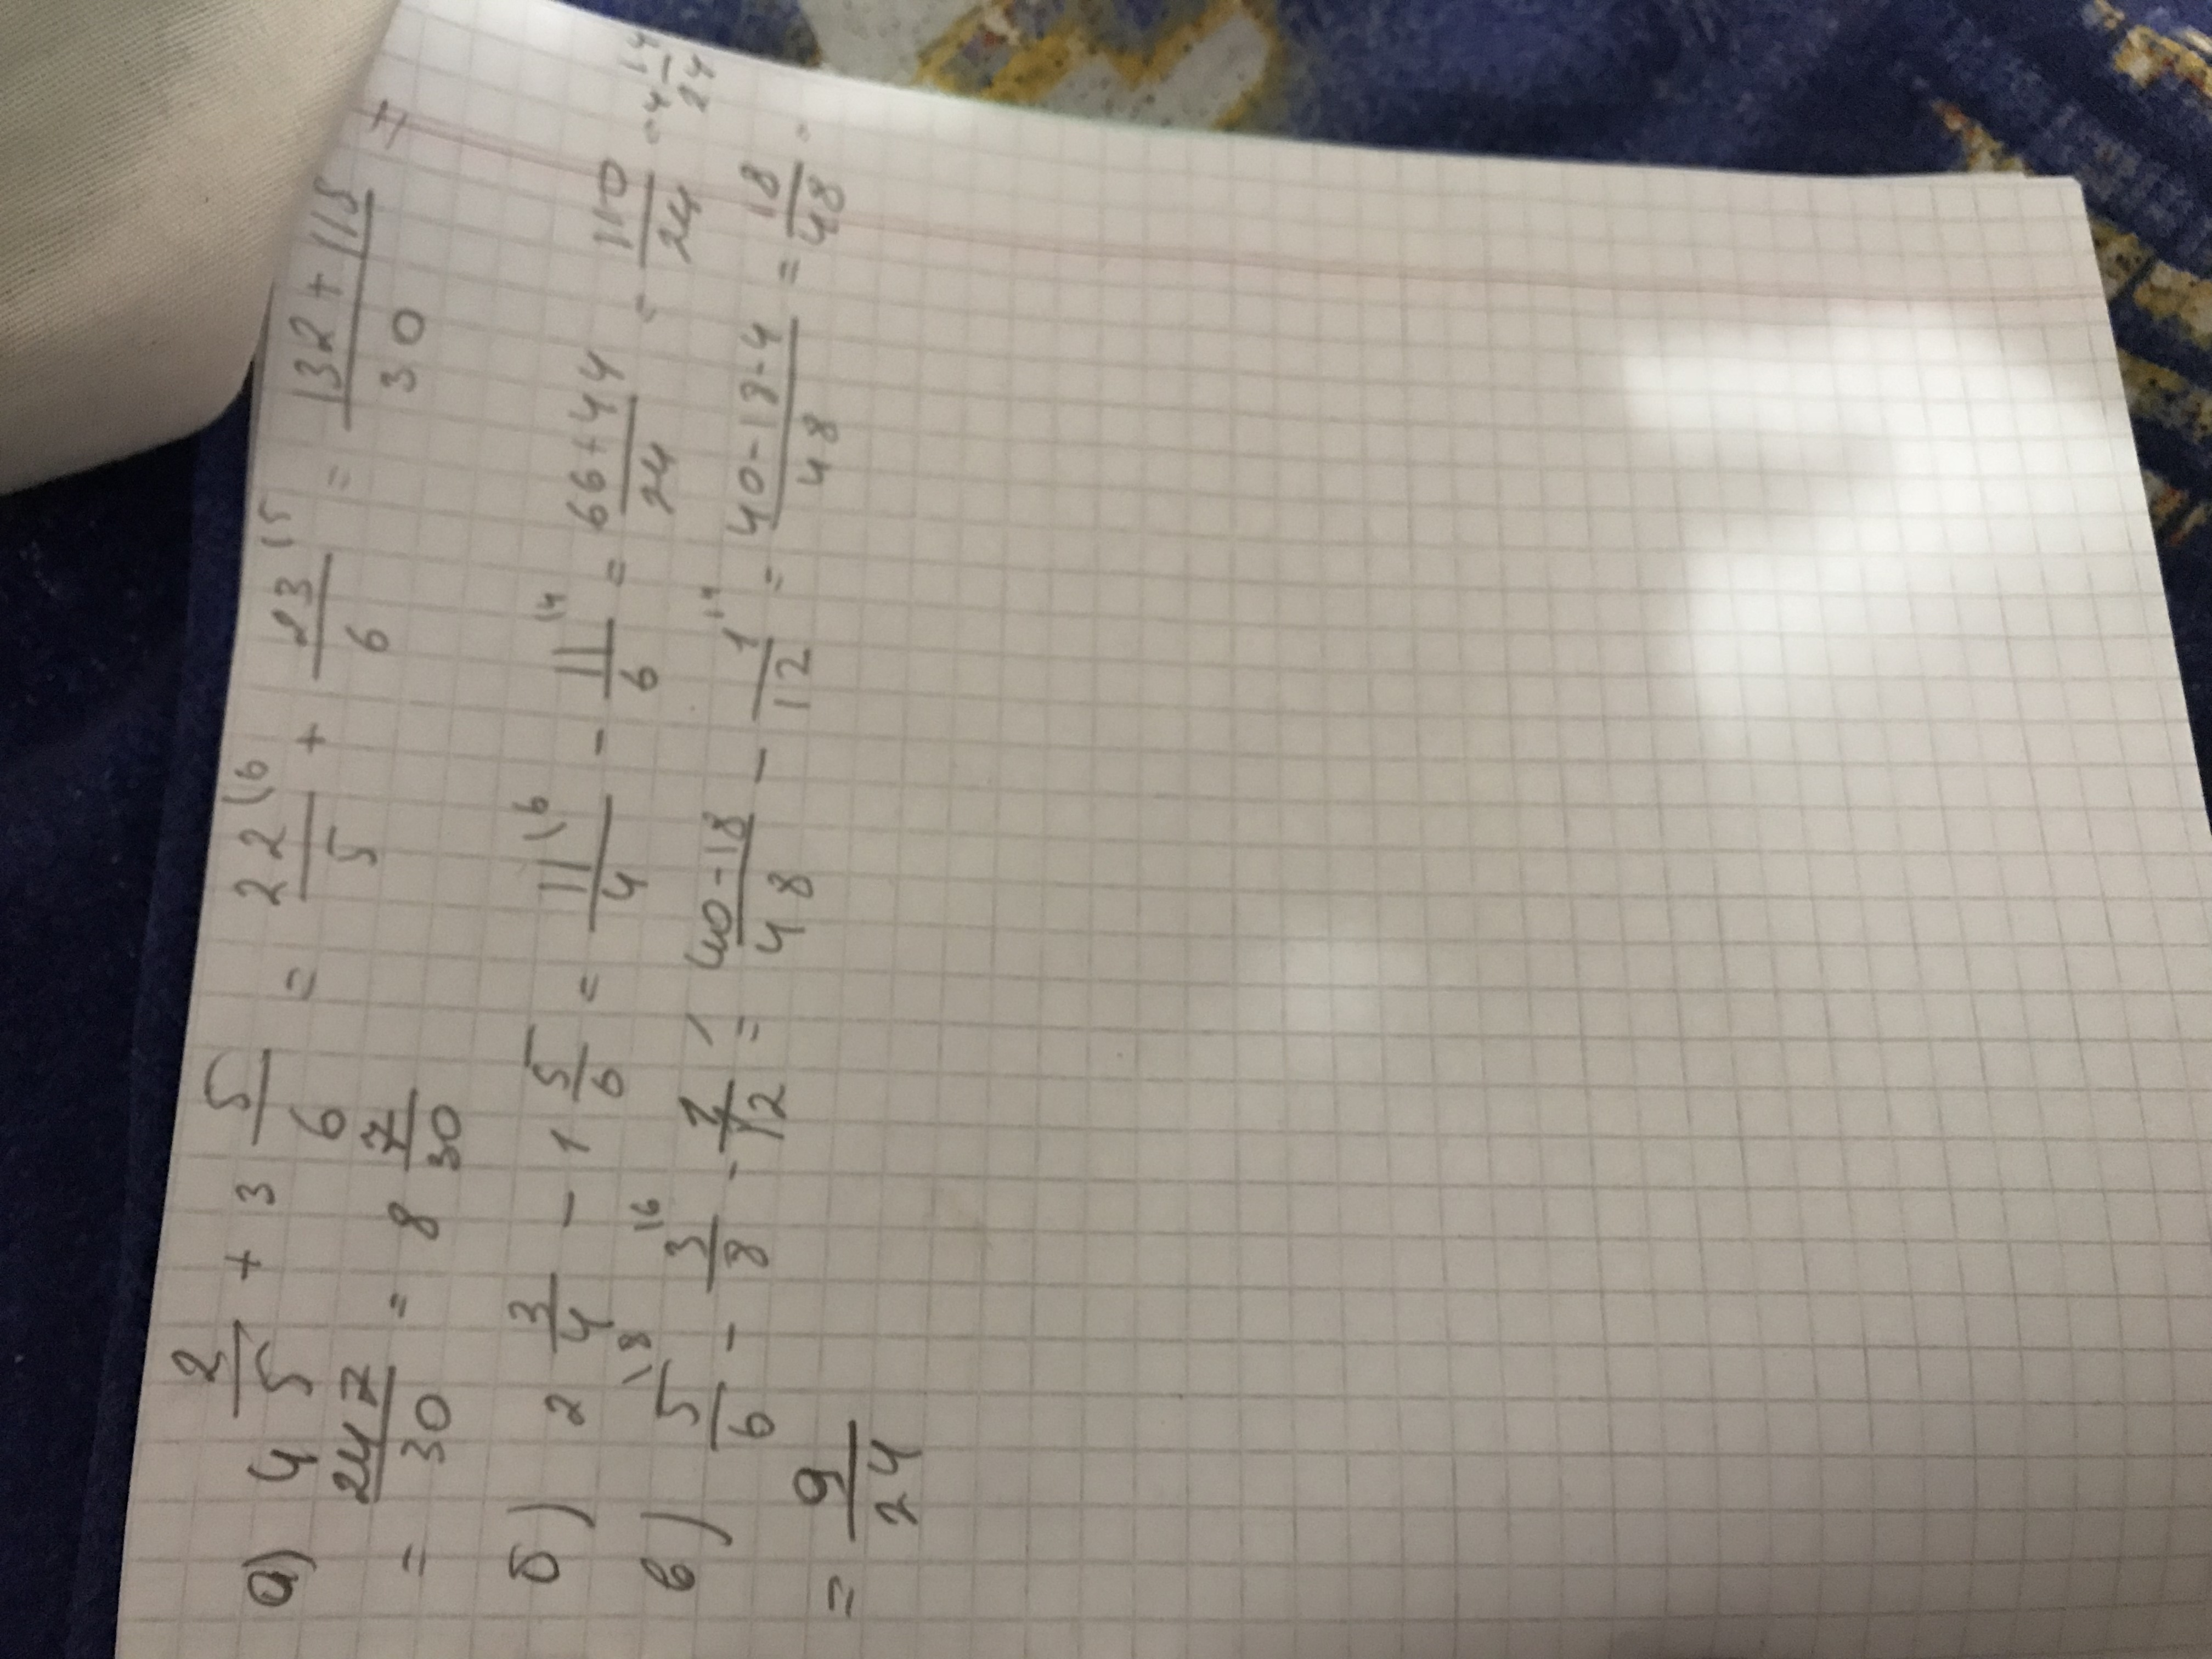 а) 4 2/5 + 3 5/6 = 22\6/5 + 23\5/6 = 132+115/30 =
= 247/30 = 8 7/30
б) 2 3/4 - 1 5/6 = 11\6/4 - 11\4/6 = 66+44/24 = 110/24 = 4 14/24
в) 5\8/6 - 3\6/8 - 1/12 = 40-18/48 - 1\4/12 = 40-18-4/48 = 18/48 =
= 9/24